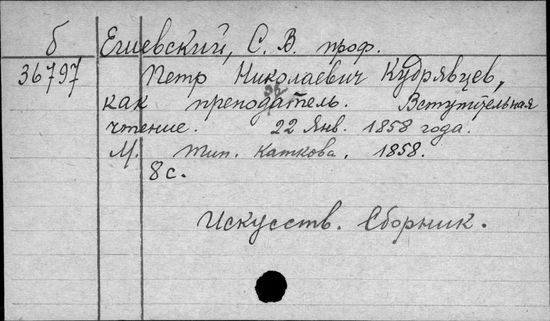 б Ешевский, С. В. проф.
36797 Петр Николаевич Кудрявцев,
как преподатель. Вступительная
чтение. 22 Янв. 1858 года.
М. Тип. Каткова, 1858.
8 с.
Искусств. Сборник.